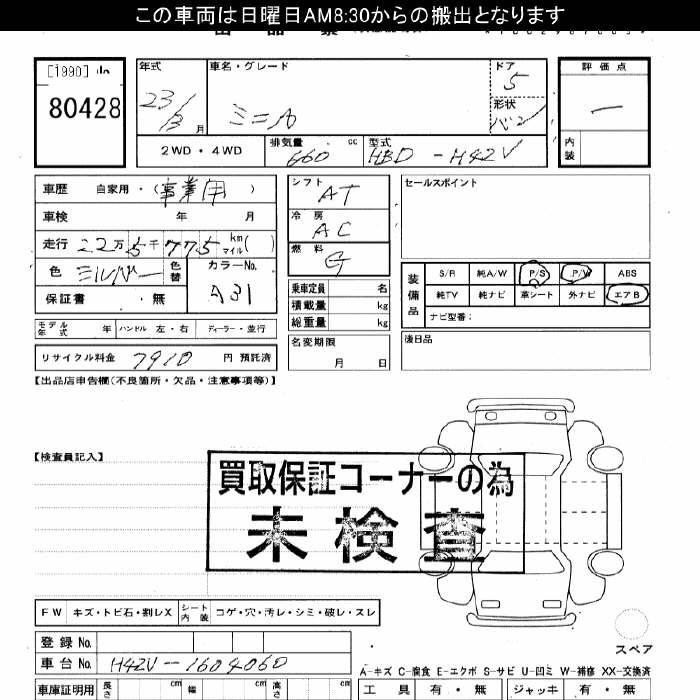 この車両は日曜日AM8:30からの搬出となります
[1990]
80428
年式 車名・グレード ドア 評価点
23/3 月 ミニカ 5 形状 バン 一
2WD・4WD 排気量 660 cc 型式 HBD-H42V 内装
車歴 自家用・(事業用)
車検 年 月
走行 22万5千775 km マイル ( )
色 シルバー 色替 カラーNo. A31
保証書 ・無
モデル年式 年 ハンドル 左・右 ディーラー・並行
リサイクル料金 7910 円 預託済
シフト AT
冷房 AC
燃料 G
乗車定員 名
積載量 kg
総重量 kg
名変期限
月 日
セールスポイント
装備品 S/R 純A/W P/S P/W ABS
純TV 純ナビ 革シート 外ナビ エアB
ナビ型番:
後日品
【出品店申告欄(不良箇所・欠品・注意事項等)】
【検査員記入】
買取保証コーナーの為
未検査
FW キズ・トビ石・割レX シート内装 コゲ・穴・汚レ・シミ・破レ・スレ
登録No.
車台No. H42V-1604060
スペア
A-キズ C-腐食 E-エクボ S-サビ U-凹ミ W-補修 XX-交換済
車庫証明用 長さ cm 幅 cm 高さ cm 工具 有・無 ジャッキ 有・無